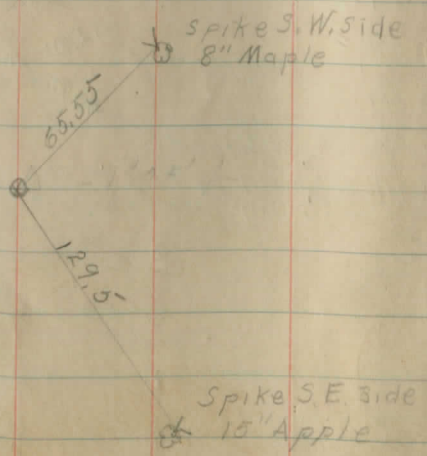 Spike S.W. Side
8" Maple
65.55
129.5
Spike S.E. Side
15" Apple